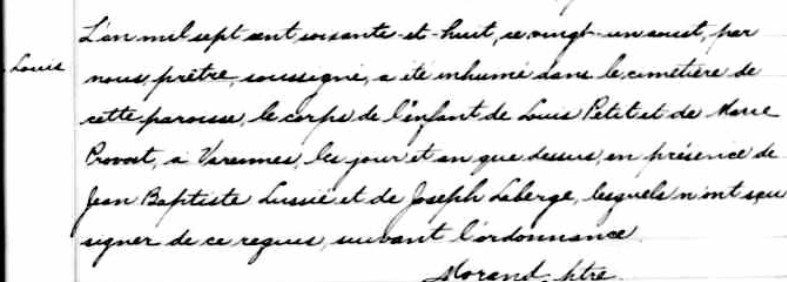 Louis
L'an mil sept cent soixante-et-huit, ce vingt-un aoust, par
nous, prêtre, soussigné, a été inhumé dans le cimetière de
cette paroisse, le corps de l'enfant de Louis Petit et de Marie
Provost, à Varennes, les jour et an que dessus, en présence de
Jean Baptiste Lussié et de Joseph Laberge, lesquels n'ont sçu
signer de ce requis, suivant l'ordonnance
Morand, ptre